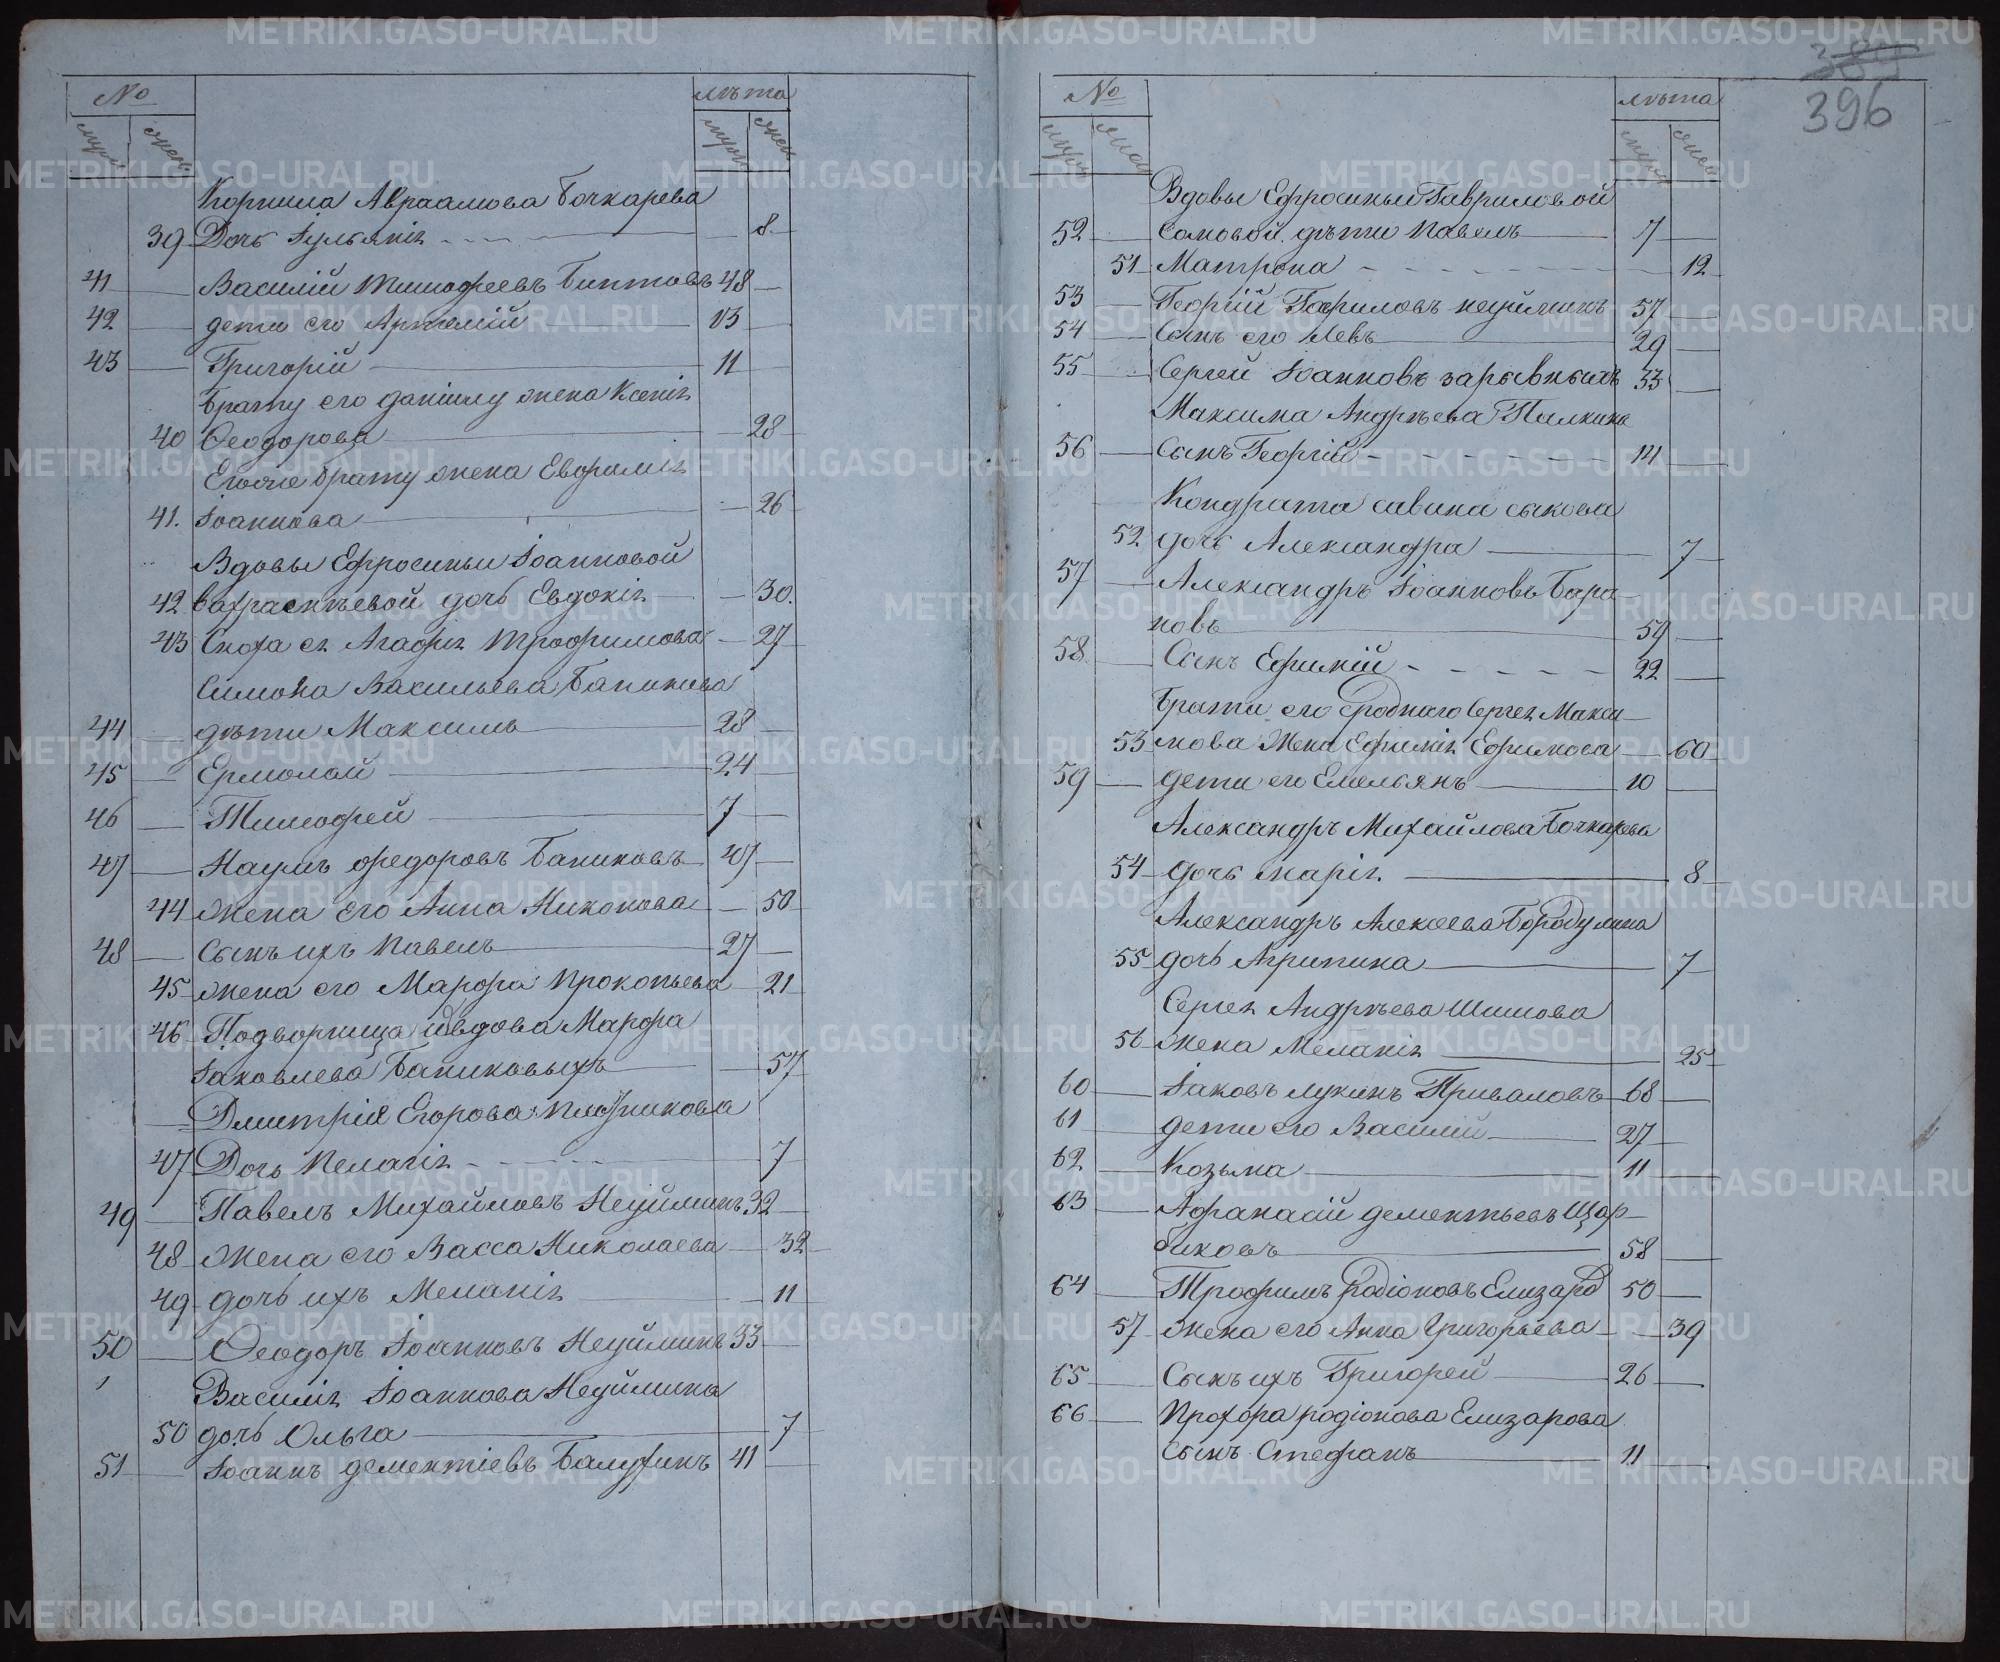 № лѣта
муж. жен. муж. жен.
Корнила Авраамова Бочкарева
39 Дочь Іульянія 8
41 Василій Тимофеевъ 48
42 дети его Артемій 13
43 Григорій 11
Брату его Даніилу жена Ксенія
40 Ѳеодорова 28
Его же брату жена Евфимія
41. Іоаннова 26
Вдовы Ефросиньи Іоанновой
42 дочь Евдокія 30.
43 Сноха ея Агафья Трофимова 27
Симона Васильева Баникова
44 дѣти Максимъ 28
45 Ермолай 24
46 Тимофей 7
47 Наумъ Федоровъ Баниковъ 47
44 жена его Анна Никонова 50
48 Сынъ ихъ Павелъ 27
45 жена его Марфа Прокопьева 21
46 Подворница вдова Марфа
Іаковлева Баниковыхъ 57
Дмитрія Егорова Плотникова
47 Дочь Пелагія 7
49 Павелъ Михайловъ Неуйминъ 32
48 Жена его Васса Николаева 32
49 дочь ихъ Меланія 11
50 Ѳеодоръ Іоанновъ Неуйминъ 33
Василія Іоаннова Неуймина
50 дочь Ольга 7
51 Іоаннъ Дементіевъ 41
389
396
№ лѣта
муж. жен. муж. жен.
Вдовы Ефросиньи Гавриловой
52 Сомовой дѣти Павелъ 7
51 Матрона 12
53 Георгій Гавриловъ Неуйминъ 57
54 Сынъ его Левъ 29
55 Сергей Іоанновъ Зарывныхъ 33
Максима Андрѣева Пилкина
56 Сынъ Георгій 14
Кондрата Савина Сыкова
52 дочь Александра 7
57 Александръ Іоанновъ Бара-
новъ 54
58 Сынъ Ефимій 22
Брата его Сроднаго Сергея Макси-
53 мова Жена Ефимія Ефимова 60
59 дети его Емельянъ 10
Александръ Михайлова Бочкарева
54 дочь Марія 8
Александръ Алексеева Бородулина
55 дочь Агрипина 7
Сергея Андрѣева Шишова
56 Жена Меланія 25
60 Іаковъ Лукинъ Приваловъ 68
61 дети его Василій 27
62 Козьма 11
63 Афанасій Дементьевъ Щер-
баковъ 58
64 Трофимъ Родіоновъ Елизаро 50
57 жена его Анна Григорьева 39
65 Сынъ ихъ Григорей 26
66 Прохора Родіонова Елизарова
сынъ Стефанъ 11
METRIKI.GASO-URAL.RU